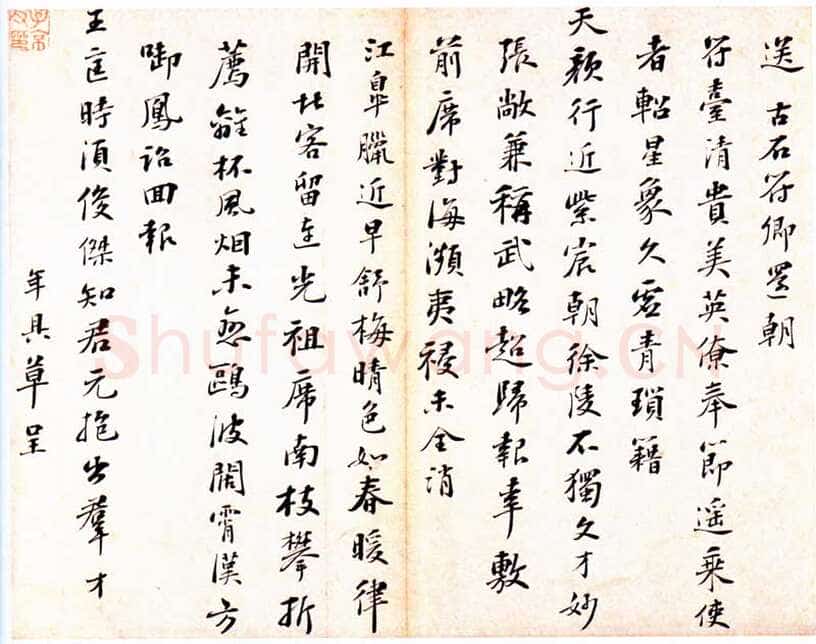 送 古石符卿還朝
符臺清貴美英僚奉節遥乘使
者軺星象久虛青瑣籍
天顏行近紫宸朝徐陵不獨文才妙
張敞兼稱武略超歸報幸敷
前席對海瀕夷祲未全消
江皋臘近早舒梅晴色如春暖律
開北客留連光祖席南枝攀折
薦離杯風烟未鷗波闊霄漢方
啣鳳詔回報
王廷時須俊傑知君元抱出羣才
年具草呈
Shufawang.CN